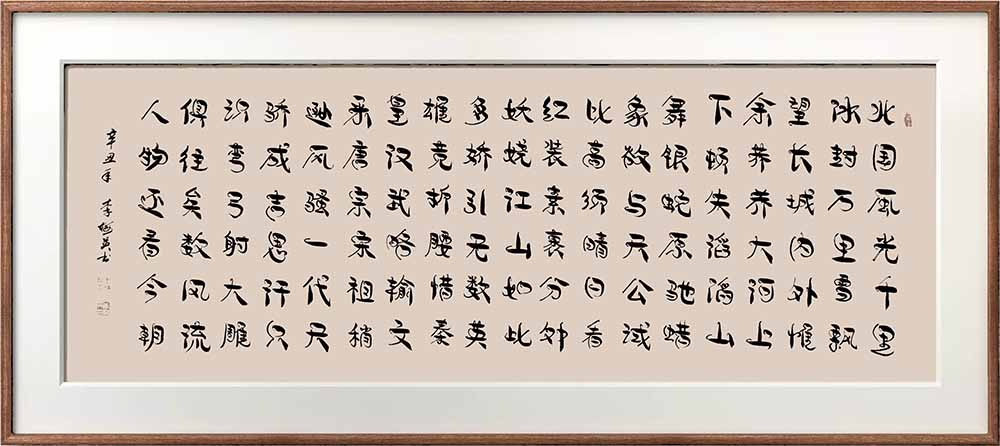 北国风光千里
冰封万里雪飘
望长城内外惟
余莽莽大河上
下顿失滔滔山
舞银蛇原驰蜡
象欲与天公试
比高须晴日看
红装素裹分外
妖娆江山如此
多娇引无数英
雄竞折腰惜秦
皇汉武略输文
采唐宗宋祖稍
逊风骚一代天
骄成吉思汗只
识弯弓射大雕
俱往矣数风流
人物还看今朝
辛丑年 李英书